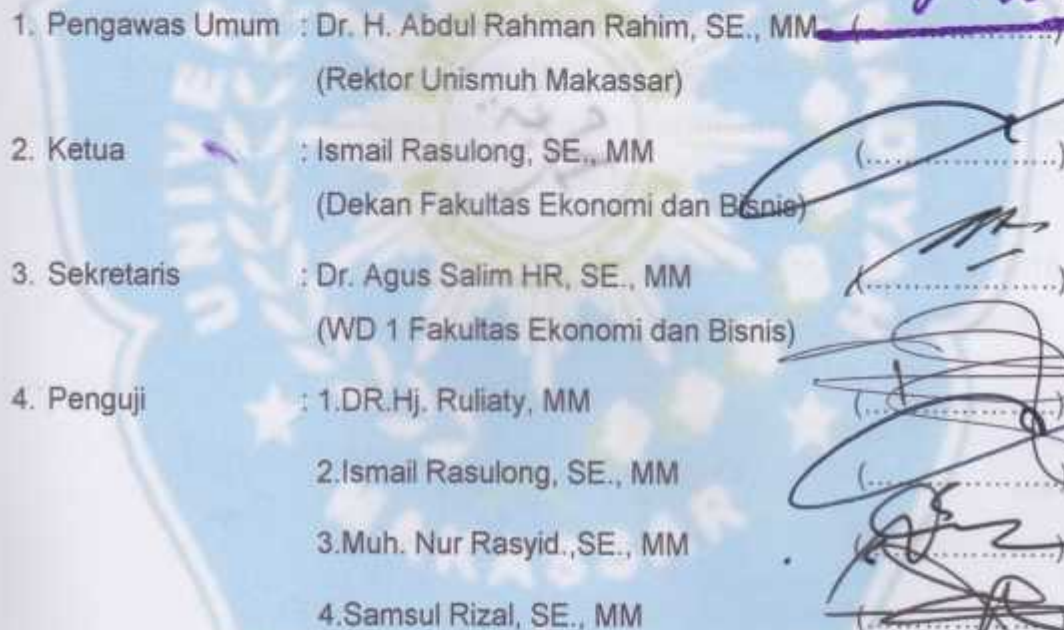 1. Pengawas Umum : Dr. H. Abdul Rahman Rahim, SE., MM (....................)
(Rektor Unismuh Makassar)
2. Ketua : Ismail Rasulong, SE., MM (....................)
(Dekan Fakultas Ekonomi dan Bisnis)
3. Sekretaris : Dr. Agus Salim HR, SE., MM (....................)
(WD 1 Fakultas Ekonomi dan Bisnis)
4. Penguji : 1.DR.Hj. Ruliaty, MM (....................)
2.Ismail Rasulong, SE., MM (....................)
3.Muh. Nur Rasyid.,SE., MM (....................)
4.Samsul Rizal, SE., MM (....................)